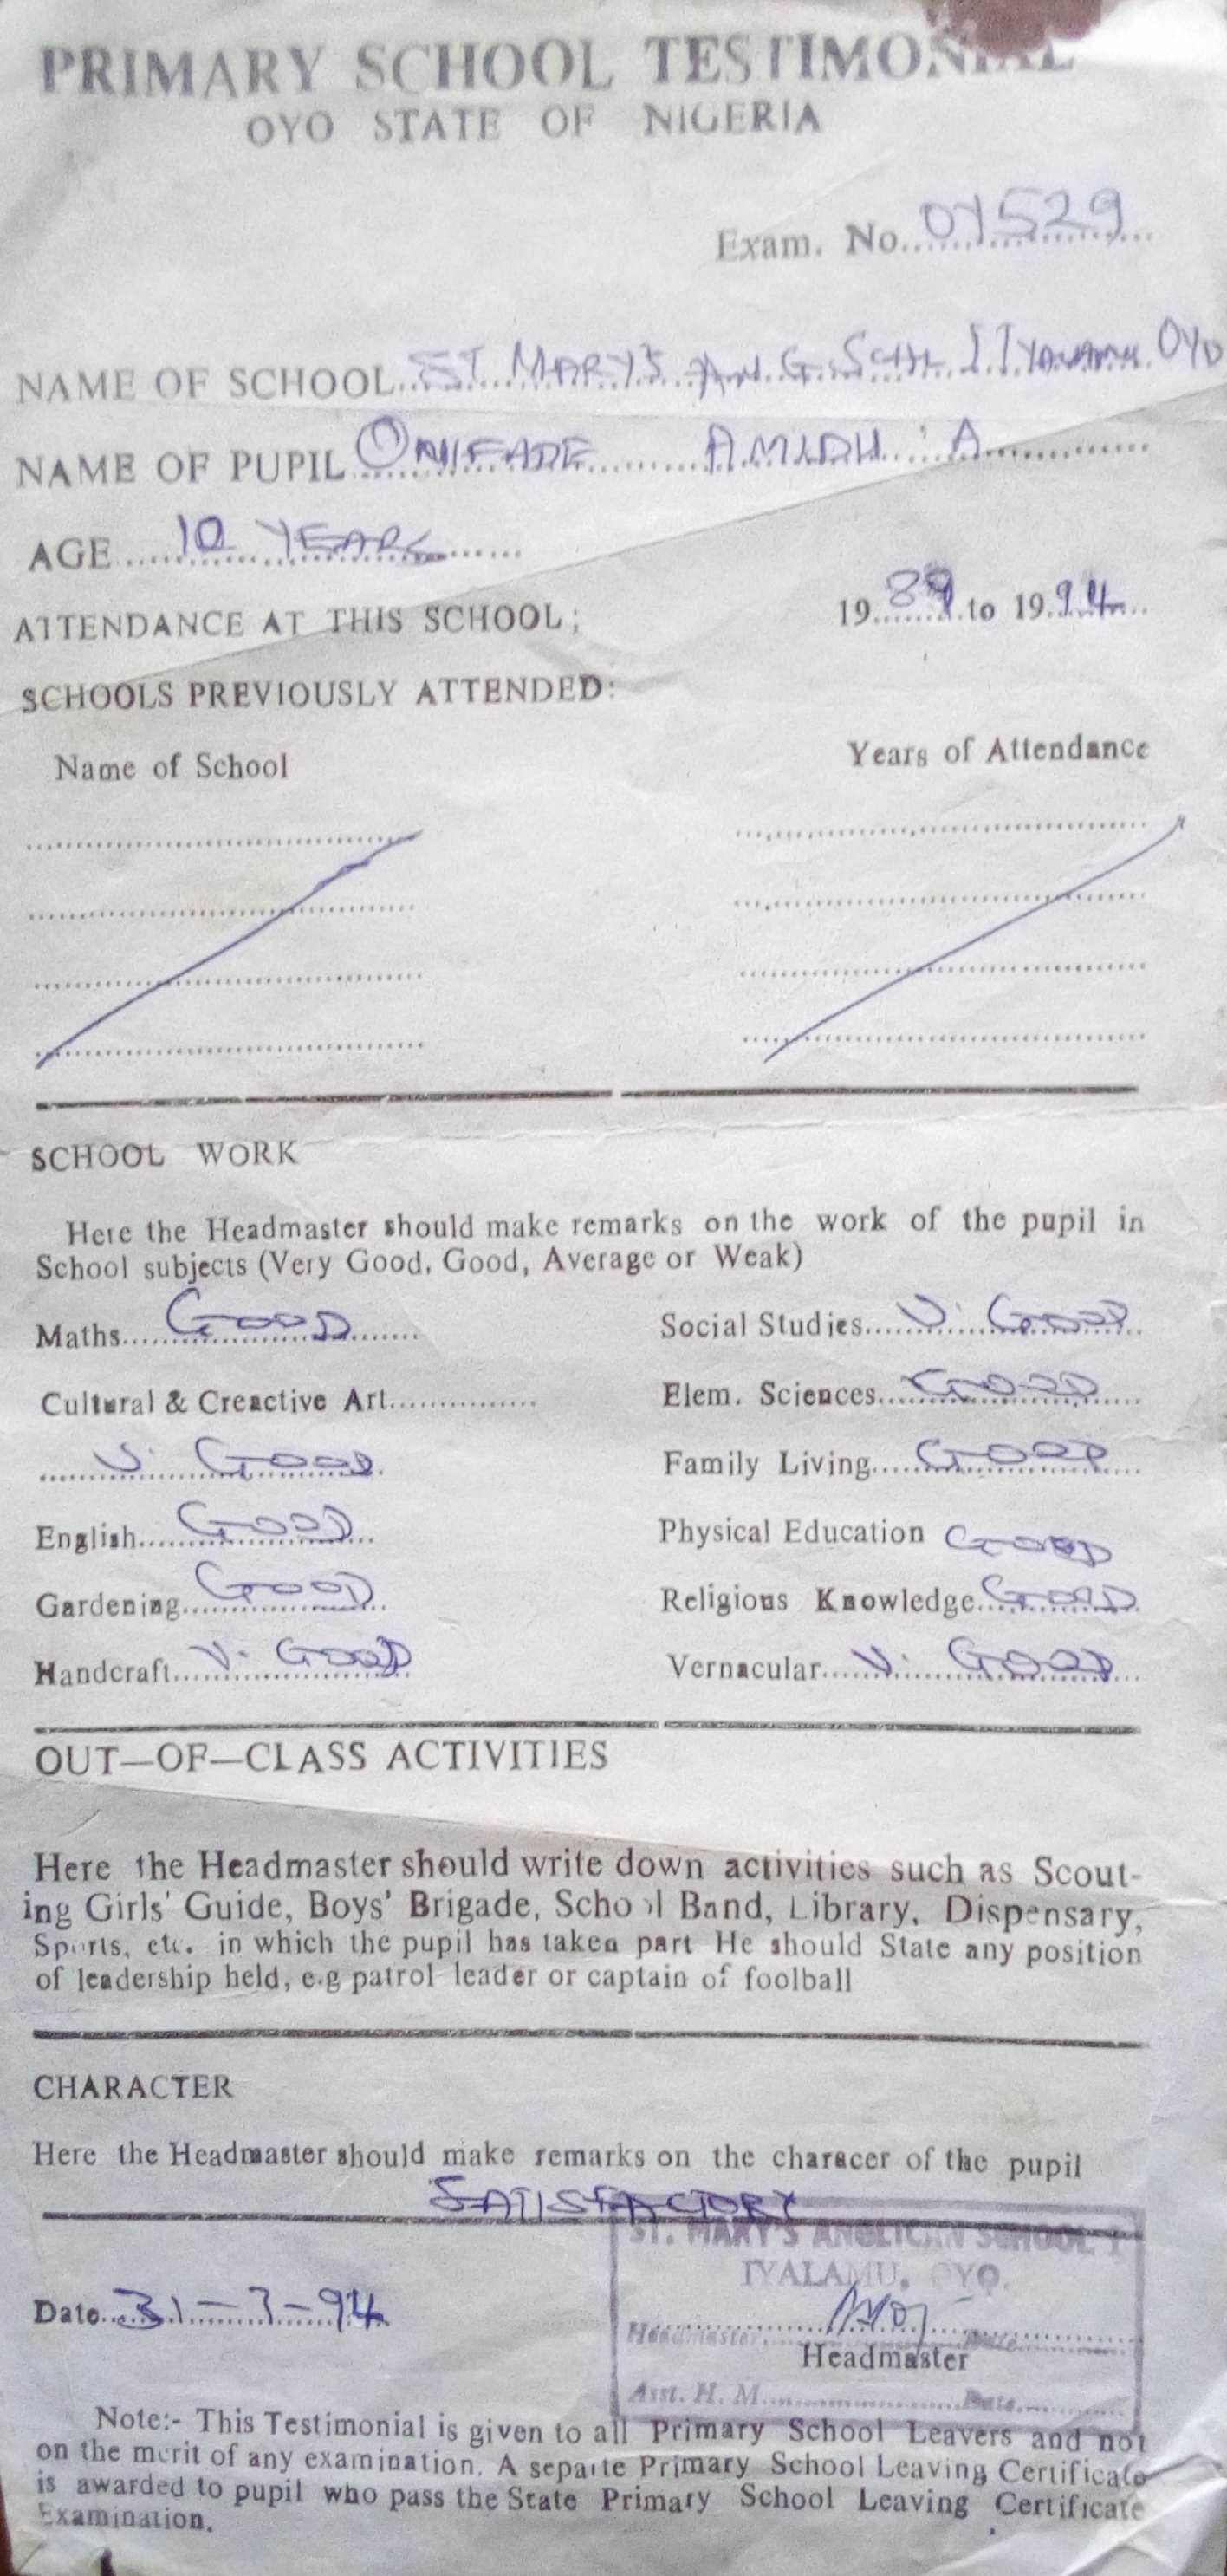 PRIMARY SCHOOL TESTIMONIAL
OYO STATE OF NIGERIA
Exam. No. 01529
NAME OF SCHOOL ST MARY'S ANG. SCH. I IYALAMU OYO
NAME OF PUPIL ONIFADE AMIDU A
AGE 10 YEARS
ATTENDANCE AT THIS SCHOOL; 19 89 to 19 94
SCHOOLS PREVIOUSLY ATTENDED:
Name of School Years of Attendance
SCHOOL WORK
Here the Headmaster should make remarks on the work of the pupil in
School subjects (Very Good, Good, Average or Weak)
Maths GOOD Social Studies V. GOOD
Cultural & Creactive Art Elem. Sciences GOOD
V. GOOD Family Living GOOD
English GOOD Physical Education GOOD
Gardening GOOD Religious Knowledge GOOD
Handcraft V. GOOD Vernacular V. GOOD
OUT—OF—CLASS ACTIVITIES
Here the Headmaster should write down activities such as Scout-
ing Girls' Guide, Boys' Brigade, School Band, Library, Dispensary,
Sports, etc. in which the pupil has taken part He should State any position
of leadership held, e.g patrol leader or captain of foolball
CHARACTER
Here the Headmaster should make remarks on the characer of the pupil
SATISFACTORY
ST. MARY'S ANGLICAN SCHOOL I
IYALAMU, OYO.
Date 31-7-94
Headmaster Date
Headmaster
Asst. H. M. Date
Note:- This Testimonial is given to all Primary School Leavers and not
on the merit of any examination. A separte Primary School Leaving Certificate
is awarded to pupil who pass the State Primary School Leaving Certificate
Examination.